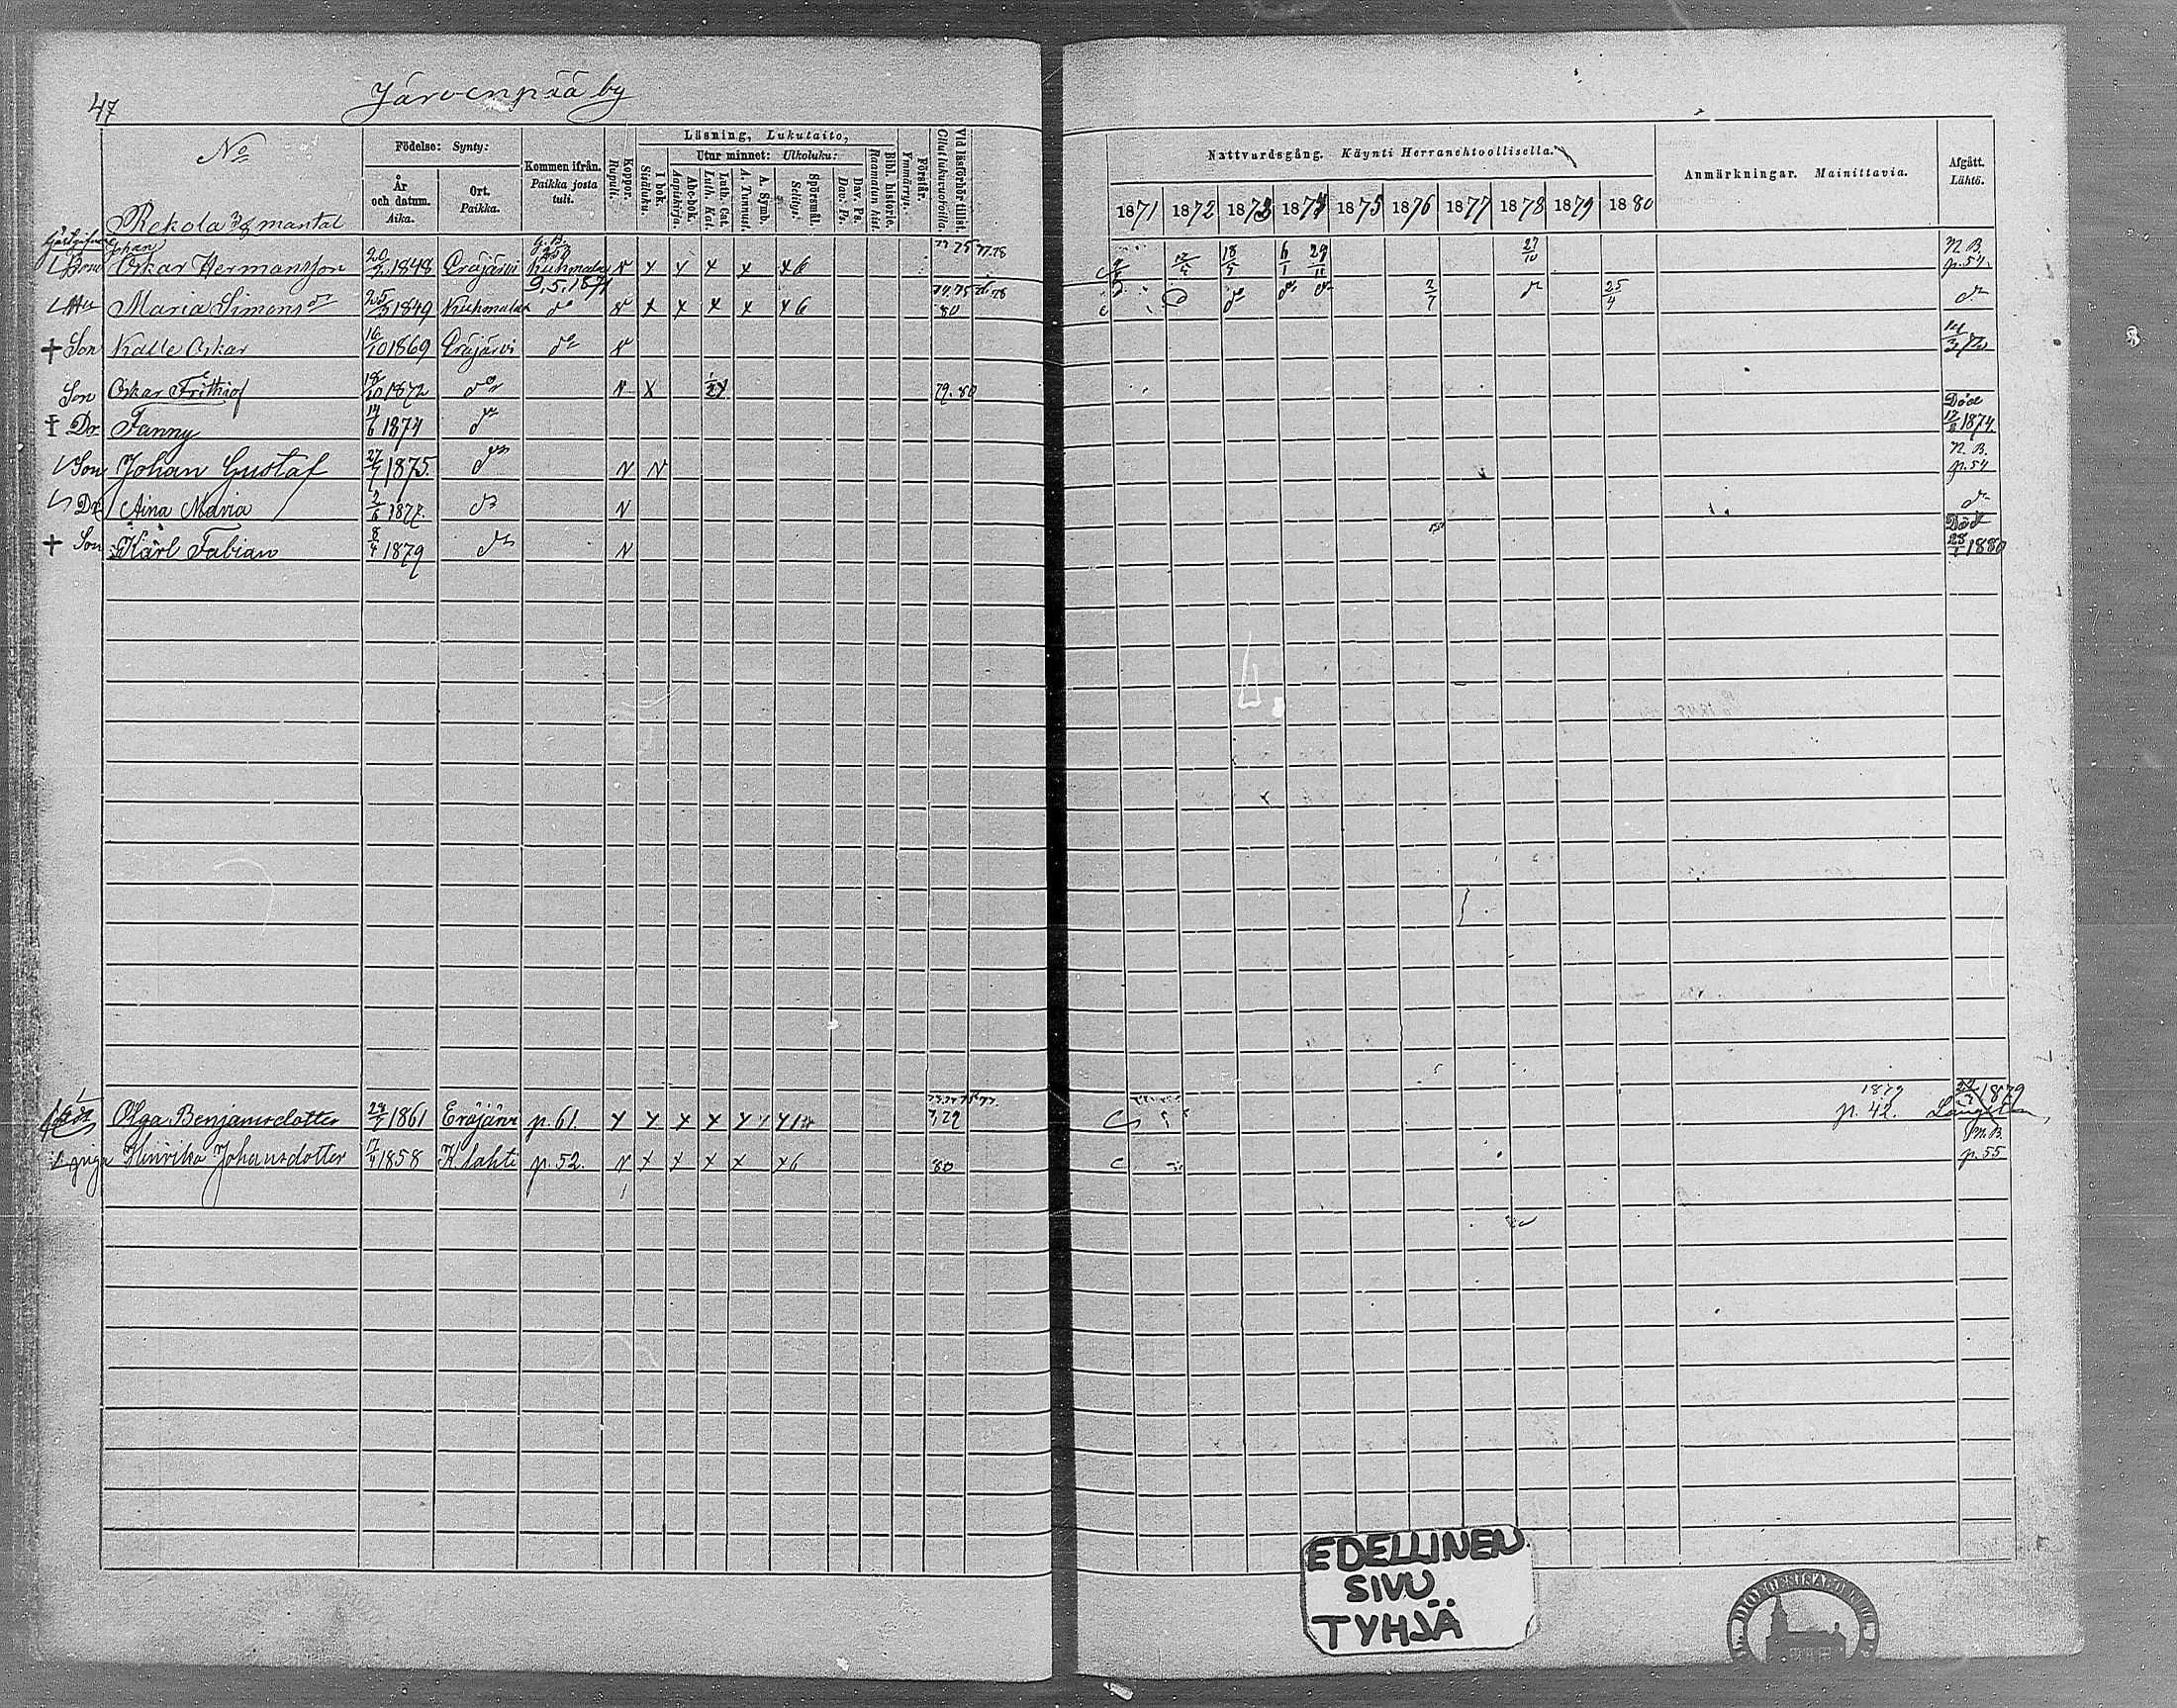 47
Järvenpää by
No
Rekola 3/8 mantal
Födelse: Synty:
År och datum. Aika.
Ort. Paikka.
Kommen ifrån. Paikka josta tuli.
Koppor. Rupuli.
Läsning, Lukutaito,
I bok. Sisäluku.
Utur minnet: Ulkoluku:
Abc-bok. Aapiskirja.
Luth. Cat. Luth. Kat.
A. Symb. A. Tunnust.
Spörsmål. Selitys.
Dav. Ps. Dav. Ps.
Bibl. historie. Raamatun hist.
Förstår. Ymmärrys.
Vid läsförhör tillst. Ollut lukuvuoroilla.
Nattvardsgång. Käynti Herranehtoollisella.
1871 1872 1873 1874 1875 1876 1877 1878 1879 1880
Anmärkningar. Mainittavia.
Afgått. Lähtö.
Johan
Oskar Hermansson 20/2 1848 Eräjärvi Kuhmalax x x x x x6 18/5 6/1 29/11 27/10 N.B. p. 54.
9.5.1871
Maria Simonsdr 25/3 1849 Kuhmalax do x x x x x6 80 do do do 2/7 do 25/4 do
† Son Kalle Oskar 16/10 1869 Eräjärvi do
Son Oskar Frithiof 18/10 1872 do x 79.80
† Dr Fanny 14/6 1874 do Död 12/8 1874.
Son Johan Gustaf 27/7 1875. do N N N.B. p. 54
Dr Aina Maria 2/6 1877. do N do
† Son Karl Fabian 8/4 1879 do N Död 28/1 1880
Olga Benjamsdotter 1861 Eräjärvi p. 61. 1879 p. 42. 1879
Piga Henrika Johansdotter 17/4 1858 K. lahti p. 52. N x x x x x6 80 N.B. p. 55
EDELLINEN
SIVU
TYHJÄ